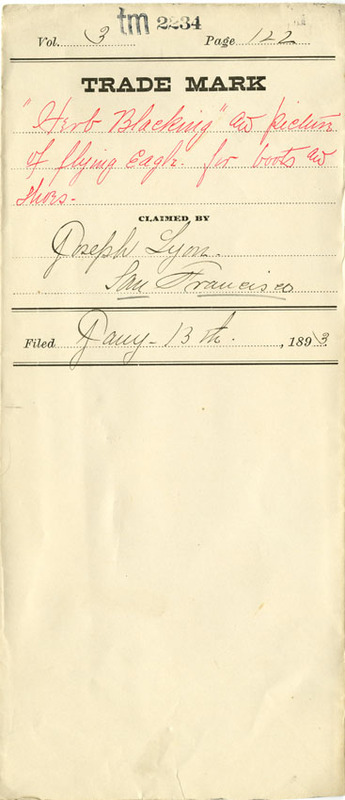 tm 2234
Vol. 3 Page 122
TRADE MARK
"Herb Blacking" and picture
of flying Eagle. for boots and
shoes.
CLAIMED BY
Joseph Lyon.
San Francisco
Filed Jany. 13th. , 1893